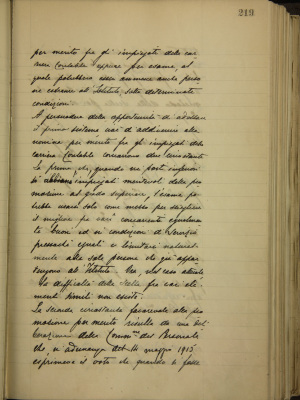 219
per merito fra gli impiegati della car
riera Contabile oppure per esame, al
quale potrebbero essere ammesse anche perso
ne estranee all'Istituto, sotto determinate
condizioni.
A persuadere della opportunità di adottare
il primo sistema cioè di addivenire alla
nomina per merito fra gli impiegati della
carriera Contabile concorrono due circostanze
La prima che, quando nei posti inferiori
si impiegati meritevoli della pro
mozione al grado superiore, l'esame po
trebbe usarsi solo come mezzo per scegliere
il migliore fra vari concorrenti egualmen
te buoni ed in condizioni di
pressochè eguali e limitare
mente alle sole persone che già appar
tengono all'Istituto. Ora, nel caso attuale
la difficoltà della scelta fra vari ele
menti simili non esiste.
La seconda circostanza favorevole alla pro
mozione per merito risulta da una del
berazione della Comm.ne dei
che in adunanza del 14 maggio 1913
esprimeva il voto che quando si fosse